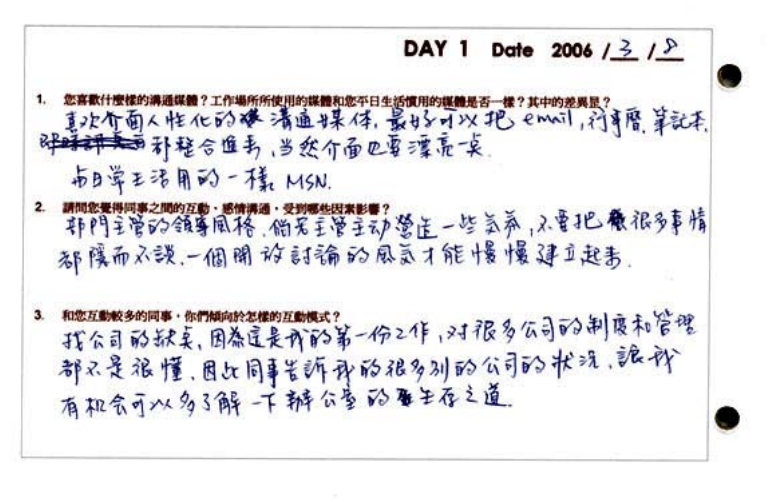 DAY 1 Date 2006 / 3 / 8
1. 您喜歡什麼樣的溝通媒體？工作場所所使用的媒體和您平日生活慣用的媒體是否一樣？其中的差異是？
喜欢介面人性化的溝通媒体，最好可以把 email，行事曆，筆記本，
都整合進去，当然介面也要漂亮一点.
与日常生活用的一樣，MSN.
2. 請問您覺得同事之間的互動、感情溝通，受到哪些因素影響？
部門主管的領導風格，倘若主管主动營造一些气氛，不要把很多事情
都隱而不談，一個開放討論的風气才能慢慢建立起来.
3. 和您互動較多的同事，你們傾向於怎樣的互動模式？
找公司的缺点，因為這是我的第一份工作，对很多公司的制度和管理
都不是很懂，因此同事告訴我的很多別的公司的狀況，讓我
有机会可以多了解一下辦公室的生存之道.